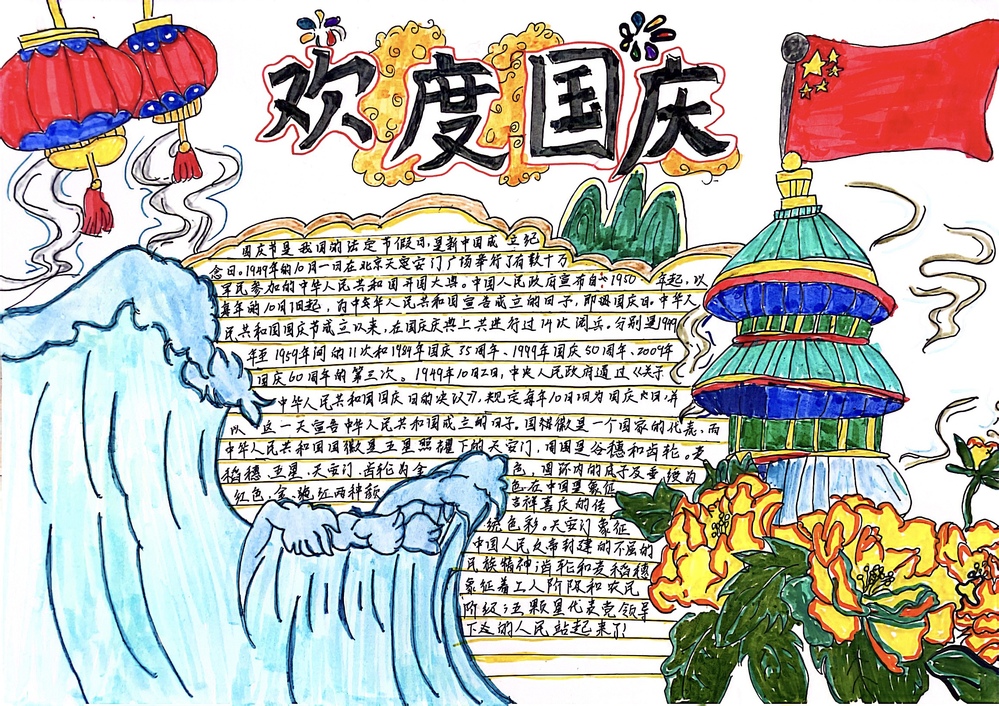 欢度国庆
国庆节是我国的法定节假日,是新中国成立纪
念日。1949年的10月一日在北京天安门广场举行了有数十万
军民参加的中华人民共和国开国大典。中国人民政府宣布自1950年起,以
每年的10月1日起,为中华人民共和国宣告成立的日子,即为国庆日。中华人
民共和国国庆节成立以来,在国庆庆典上共进行过14次阅兵。分别是1949
年至1959年间的11次和1984年国庆35周年、1999年国庆50周年、2009年
国庆60周年的第三次。1949年10月2日,中央人民政府通过《关于
中华人民共和国国庆日的决议》,规定每年10月1日为国庆日,并
以这一天宣告中华人民共和国成立的日子。国徽是一个国家的代表,而
中华人民共和国国徽是五星照耀下的天安门,周围是谷穗和齿轮。麦
稻穗、五星、天安门、齿轮为金色,圆环内的底子及垂绶为
红色,金、红两种颜色在中国是象征
吉祥喜庆的传
统色彩。天安门象征
中国人民反帝封建的不屈的
民族精神;齿轮和麦稻穗
象征着工人阶级和农民
阶级;五颗星代表党领导
下的人民站起来了!